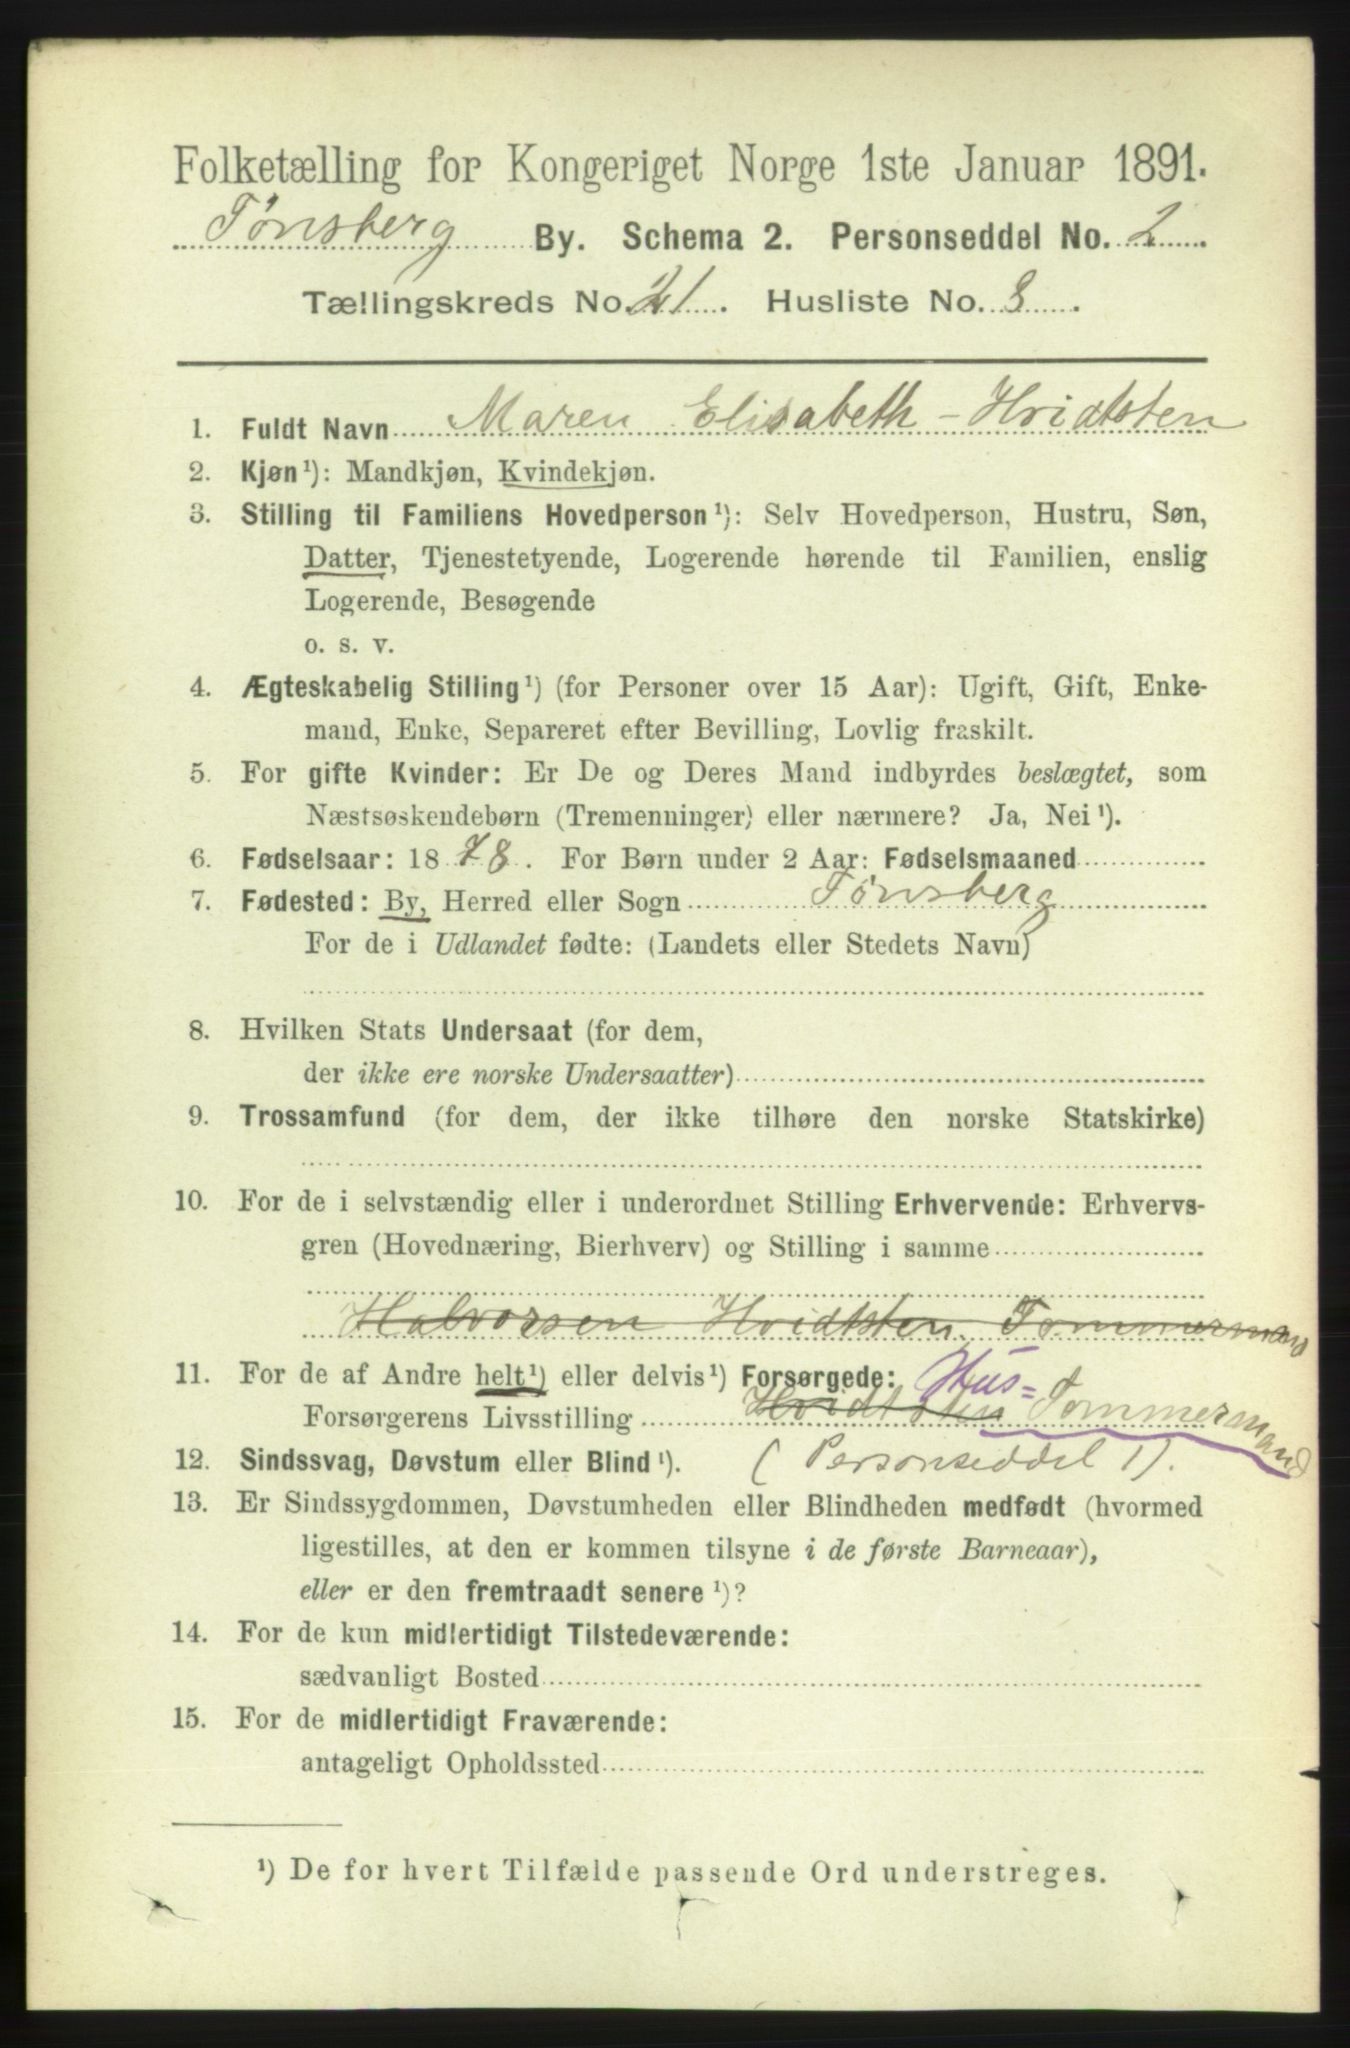 Folketælling for Kongeriget Norge 1ste Januar 1891.
Tønsberg By. Schema 2. Personseddel No. 2
Tællingskreds No. 21. Husliste No. 8.
1. Fuldt Navn Maren Elisabeth - Hvidtsten
2. Kjøn¹): Mandkjøn, Kvindekjøn.
3. Stilling til Familiens Hovedperson¹): Selv Hovedperson, Hustru, Søn,
Datter, Tjenestetyende, Logerende hørende til Familien, enslig
Logerende, Besøgende
o. s. v.
4. Ægteskabelig Stilling¹) (for Personer over 15 Aar): Ugift, Gift, Enke-
mand, Enke, Separeret efter Bevilling, Lovlig fraskilt.
5. For gifte Kvinder: Er De og Deres Mand indbyrdes beslægtet, som
Næstsøskendebørn (Tremenninger) eller nærmere? Ja, Nei¹).
6. Fødselsaar: 1878. For Børn under 2 Aar: Fødselsmaaned
7. Fødested: By, Herred eller Sogn Tønsberg
For de i Udlandet fødte: (Landets eller Stedets Navn)
8. Hvilken Stats Undersaat (for dem,
der ikke ere norske Undersaatter)
9. Trossamfund (for dem, der ikke tilhøre den norske Statskirke)
10. For de i selvstændig eller i underordnet Stilling Erhvervende: Erhvervs-
gren (Hovednæring, Bierhverv) og Stilling i samme
Halvorsen Hvidtsten. Tømmermand
11. For de af Andre helt¹) eller delvis¹) Forsørgede: Hus=
Forsørgerens Livsstilling Hvidtsten Tømmermand
12. Sindssvag, Døvstum eller Blind¹). (Personseddel 1).
13. Er Sindssygdommen, Døvstumheden eller Blindheden medfødt (hvormed
ligestilles, at den er kommen tilsyne i de første Barneaar),
eller er den fremtraadt senere¹)?
14. For de kun midlertidigt Tilstedeværende:
sædvanligt Bosted
15. For de midlertidigt Fraværende:
antageligt Opholdssted
¹) De for hvert Tilfælde passende Ord understreges.